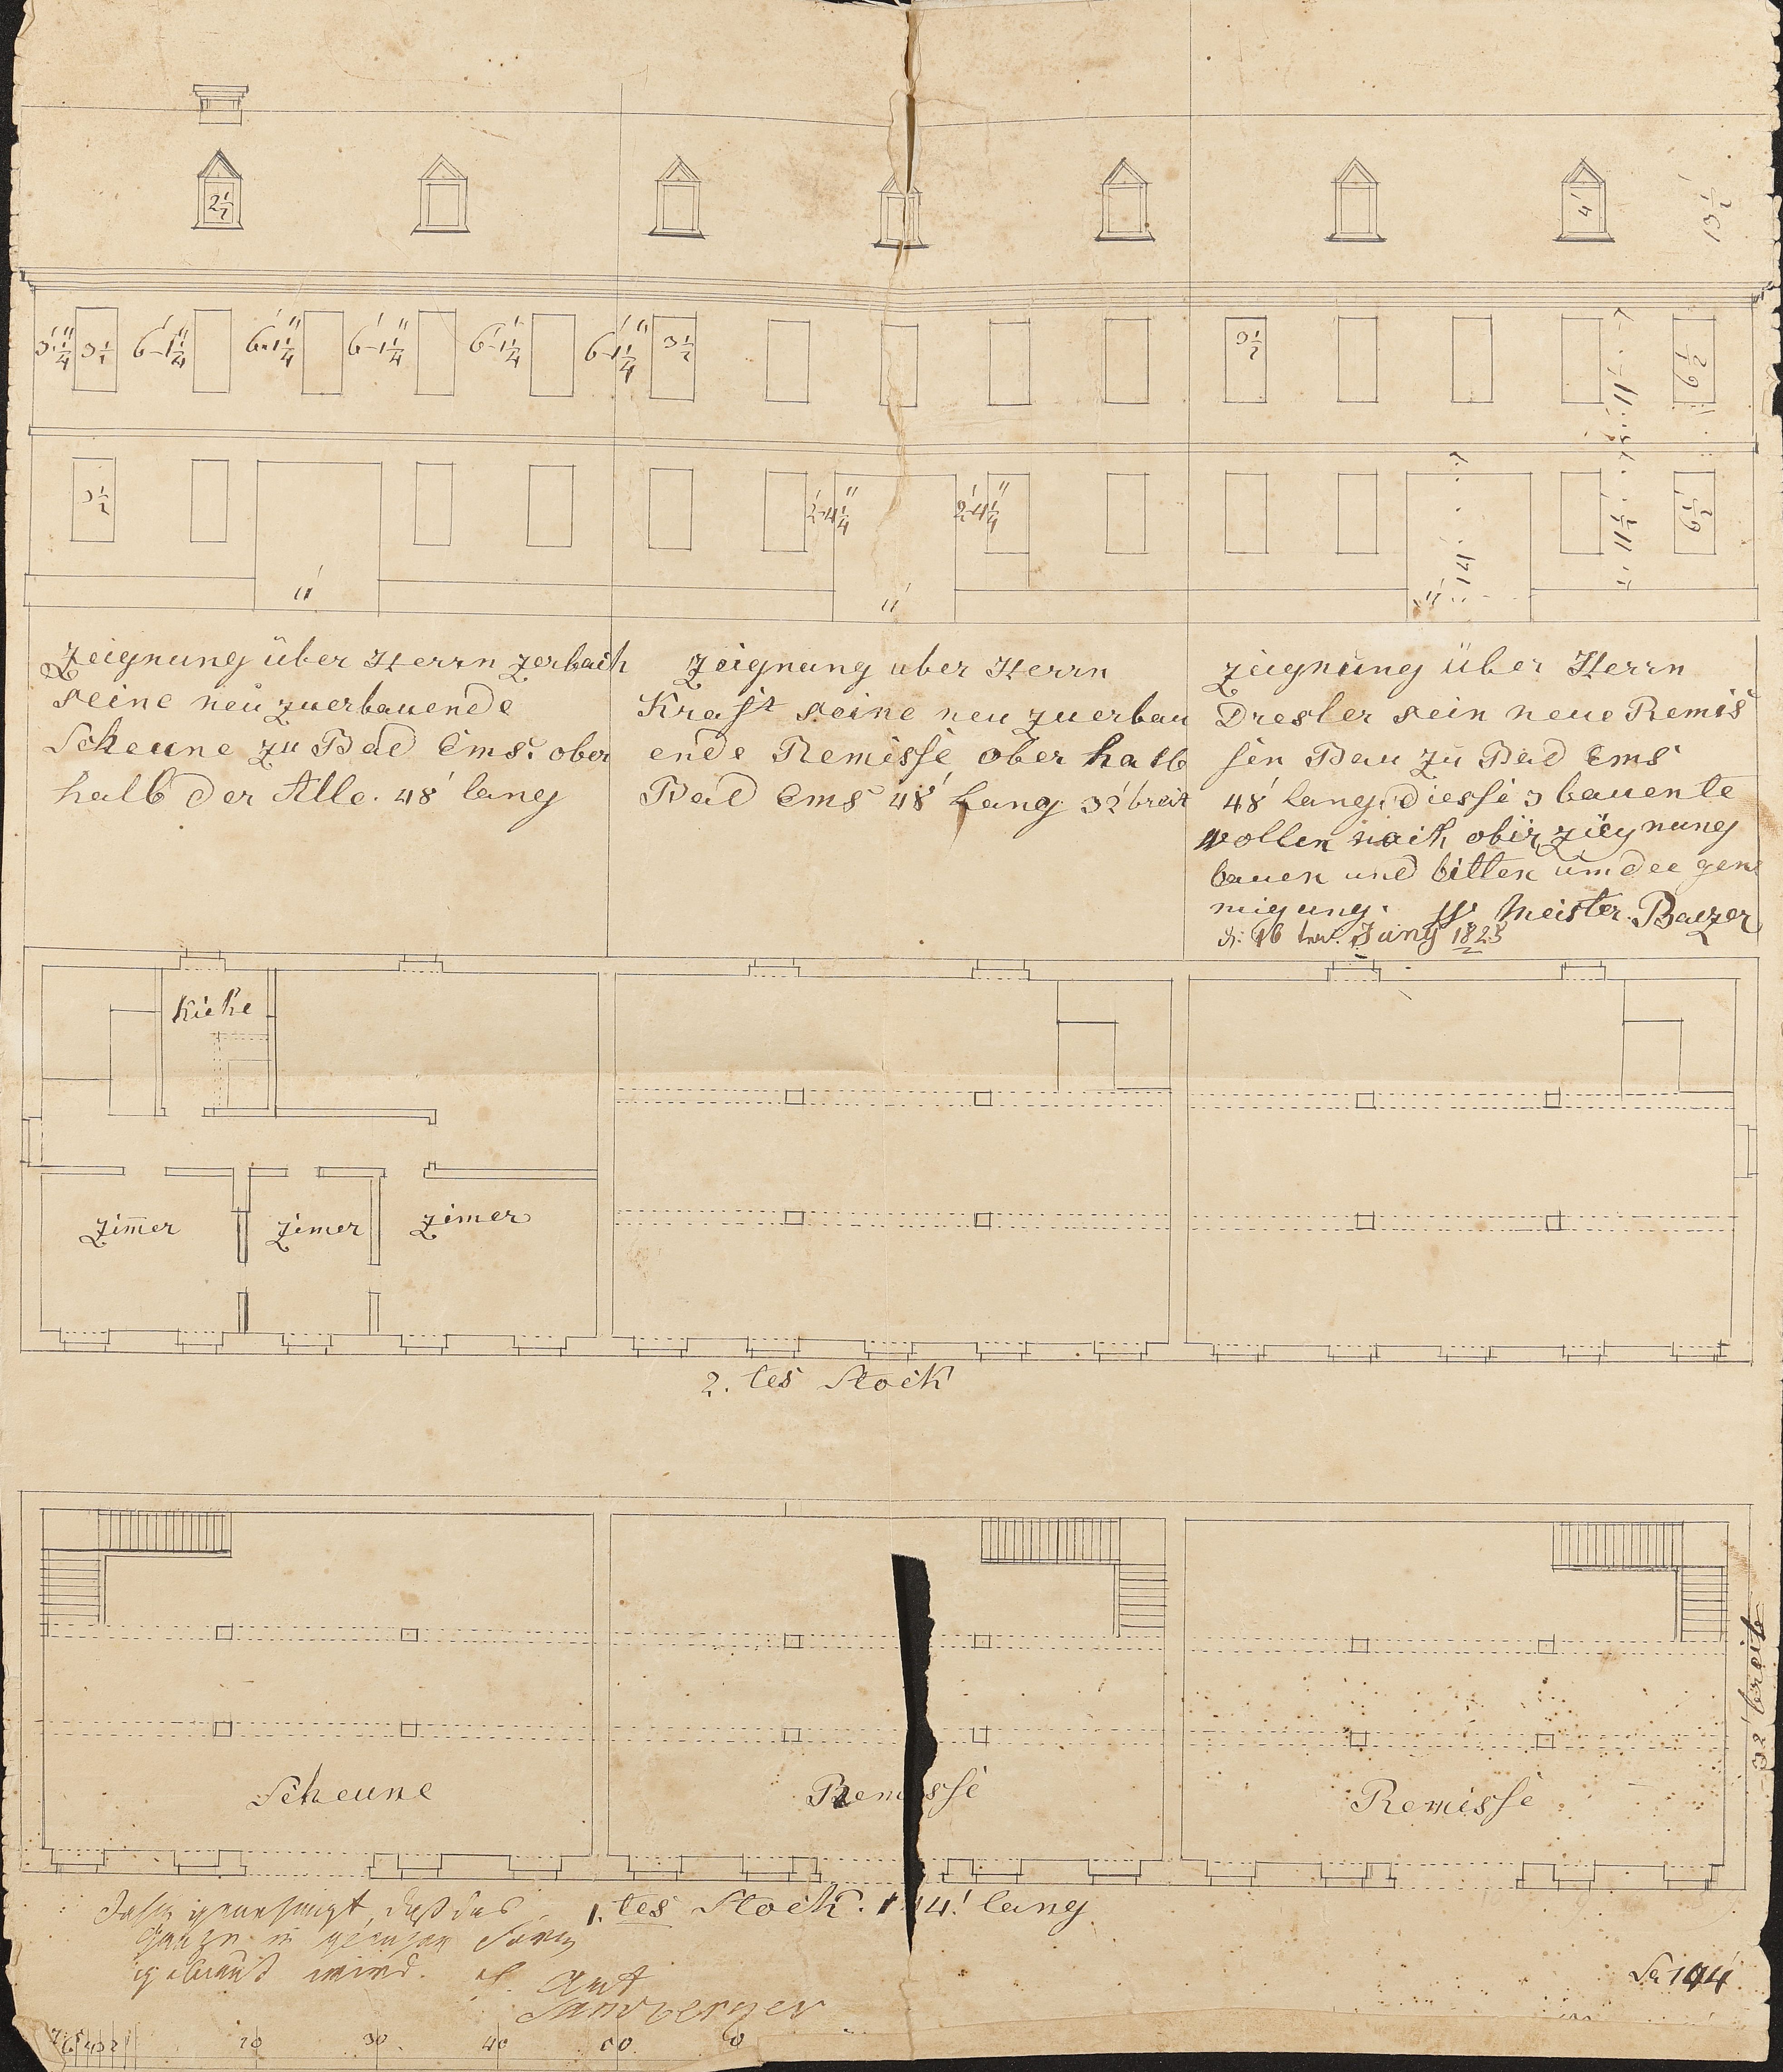 2 1/2
4'
13 1/2'
3' 1/4" 3 1/2 6'-1 1/4" 6'-1 1/4" 6'-1 1/4" 6'-1 1/4" 6'-1 1/4" 3 1/2
3 1/2
11 1/2
6 1/2
3 1/2
2'-4 1/4" 2'-4 1/4"
14'
11 1/2
6 1/2
11' 11' 11'
Zeignung über Herrn Zerbach
seine neu zuerbauende
Scheune zu Bad Ems. ober
halb der Alle. 48' lang
Zeignung uber Herrn
Kraft seine neu zuerbau
ende Remisse ober halb
Bad Ems 48' Lang 32' breit
Zeignung über Herrn
Dresler sein neue Remis
sen Bau zu Bad Ems
48' lang. diesse 3 bauente
wollen nach obir Zeignung
bauen und bitten um die gene
migung. Meister Balzer
d: 16 ten Juny 1823
Kiche
Zimer Zimer Zimer
2. tes Stock
Scheune Remisse Remisse
32' breit
1. tes Stock. 144' lang
daß das
Ganze in
gebaut wird.
Amt
Sandberger
144
20 30 40 50 60